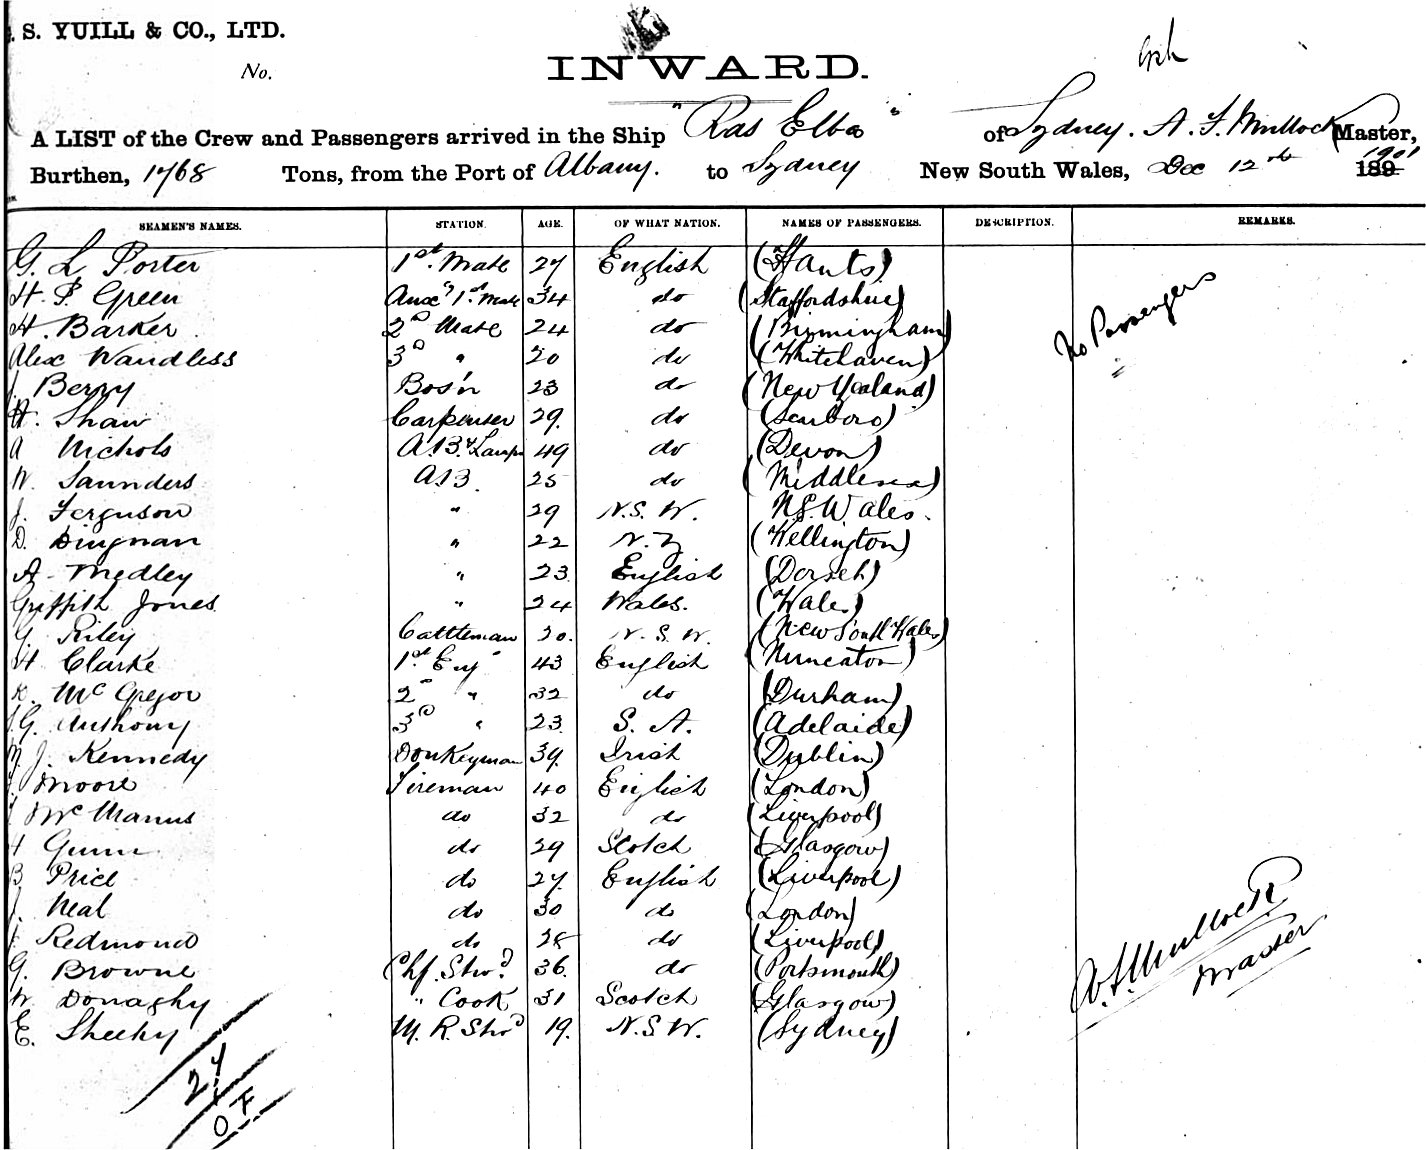 . S. YUILL & CO., LTD.
No.
INWARD.
A LIST of the Crew and Passengers arrived in the Ship "Ras Elba" of Sydney. A. F. Mullock Master,
Burthen, 1768 Tons, from the Port of Albany. to Sydney New South Wales, Dec 12th 189 1901
SEAMEN'S NAMES. STATION. AGE. OF WHAT NATION. NAMES OF PASSENGERS. DESCRIPTION. REMARKS.
G. L. Porter 1st Mate 27 English (Hants)
H. P. Green Aux 1st Mate 34 do (Staffordshire)
H. Barker 2nd Mate 24 do (Birmingham)
No Passengers
Alex Wandless 3d " 20 do (Whitehaven)
J. Berry Bos'n 23 do (New Zealand)
H. Shaw Carpenter 29. do (Scarboro)
A Nichols A.B. & Lamps 49 do (Devon)
W. Saunders A.B. 25 do (Middlesex)
J. Ferguson " 29 N.S.W. N.S. Wales.
D. Dingnan " 22 N.Z (Wellington)
A. Medley " 23 English (Dorset)
Griffith Jones " 24 Wales. (Wales)
G. Riley Cattleman 20. N.S.W. (New South Wales)
H Clarke 1st Eng 43 English (Nuneaton)
K. McGregor 2nd " 32 do (Durham)
J.G. Anthony 3d " 23 S. A. (Adelaide)
M. J. Kennedy Donkeyman 39. Irish (Dublin)
Moore Fireman 40 English (London)
McManus do 32 do (Liverpool)
H Gunn do 29 Scotch (Glasgow)
B Price do 27 English (Liverpool)
J. Neal do 30 do (London)
J. Redmond do 28 do (Liverpool)
G. Browne Chf. Stwd 36. do (Portsmouth)
W. Donaghy " Cook 31 Scotch (Glasgow)
E. Sheehy M. R. Stwd 19. N.S.W. (Sydney)
A. F. Mullock
Master
27
O F